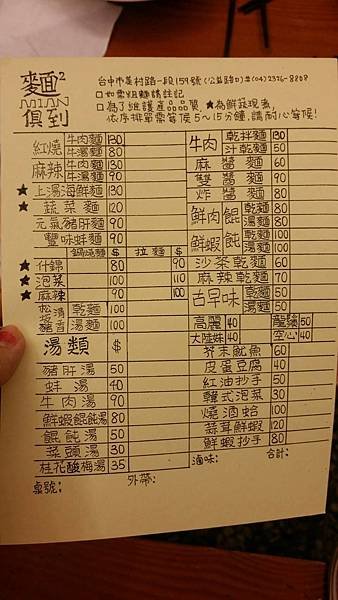 麵² MIAN 俱到
台中市美村路一段159號(公益路口)☎(04)2376-8808
□如需粗麵請註記
□為了維護產品品質,★為鮮蔬現煮,
依序排單需等候5~15分鐘,請耐心等候!
紅燒 牛肉麵 130
牛湯麵 80
麻辣 牛肉麵 130
牛湯麵 80
★上湯海鮮麵 130
★蔬菜麵 120
元氣豬肝麵 90
豐味蚵麵 90
鍋燒麵 $ 拉麵 $
★什錦 80 90
★泡菜 100 110
★麻辣 90 100
松清 乾麵 100
露香 湯麵 100
湯類 $
豬肝湯 50
蚵湯 40
牛肉湯 90
鮮蝦餛飩湯 80
餛飩湯 50
菜頭湯 30
桂花酸梅湯 35
桌號:
外帶:
牛肉 乾拌麵 130
汁乾麵 50
麻醬麵 60
雙醬麵 90
炸醬麵 80
鮮肉餛飩 乾麵 80
湯麵 80
鮮蝦餛飩 乾麵 100
湯麵 100
沙茶乾麵 60
麻辣乾麵 60
古早味 乾麵 50
湯麵 50
高麗 40 龍鬚 50
大陸妹 40 空心 40
芥末魷魚 60
皮蛋豆腐 40
紅油抄手 50
韓式泡菜 30
燒酒蛤 100
蒜茸鮮蝦 120
鮮蝦抄手 80
滷味:
合計: